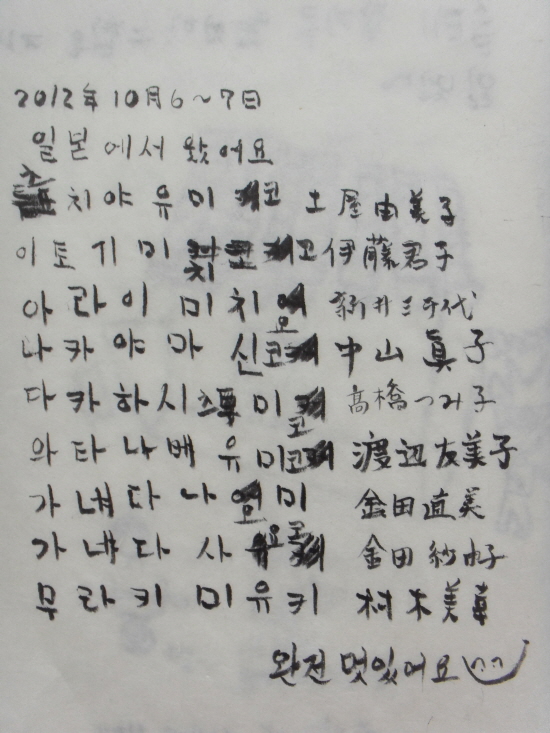 2012年10月6~7日
일본에서 왔어요
츠치야 유미코 土屋由美子
이토 기미코 伊藤君子
아라이 미치요 新井三千代
나카야마 신코 中山眞子
다카하시 츠미코 高橋つみ子
와타나베 유미코 渡辺友美子
가네다 나오미 金田直美
가네다 사요코 金田紗由子
무라키 미유키 村木美幸
완전 멋있어요